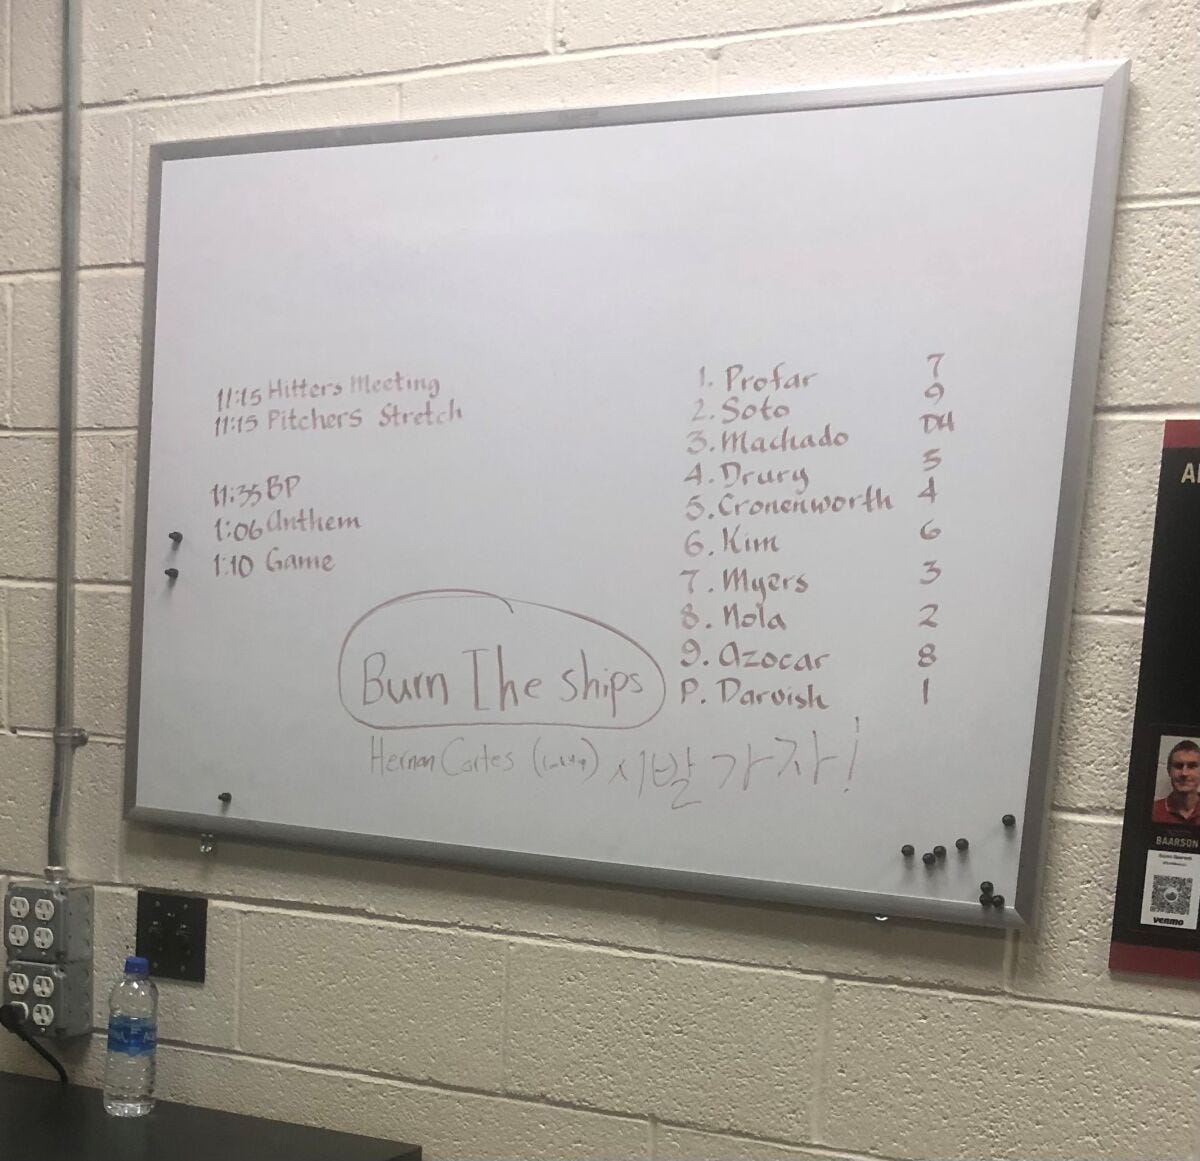 11:15 Hitters Meeting
11:15 Pitchers Stretch
11:35 BP
1:06 Anthem
1:10 Game
1. Profar 7
2. Soto 9
3. Machado DH
4. Drury 5
5. Cronenworth 4
6. Kim 6
7. Myers 3
8. Nola 2
9. Azocar 8
P. Darvish 1
Burn The ships
Hernan Cortes
시발 가자!
BAARSON
venmo